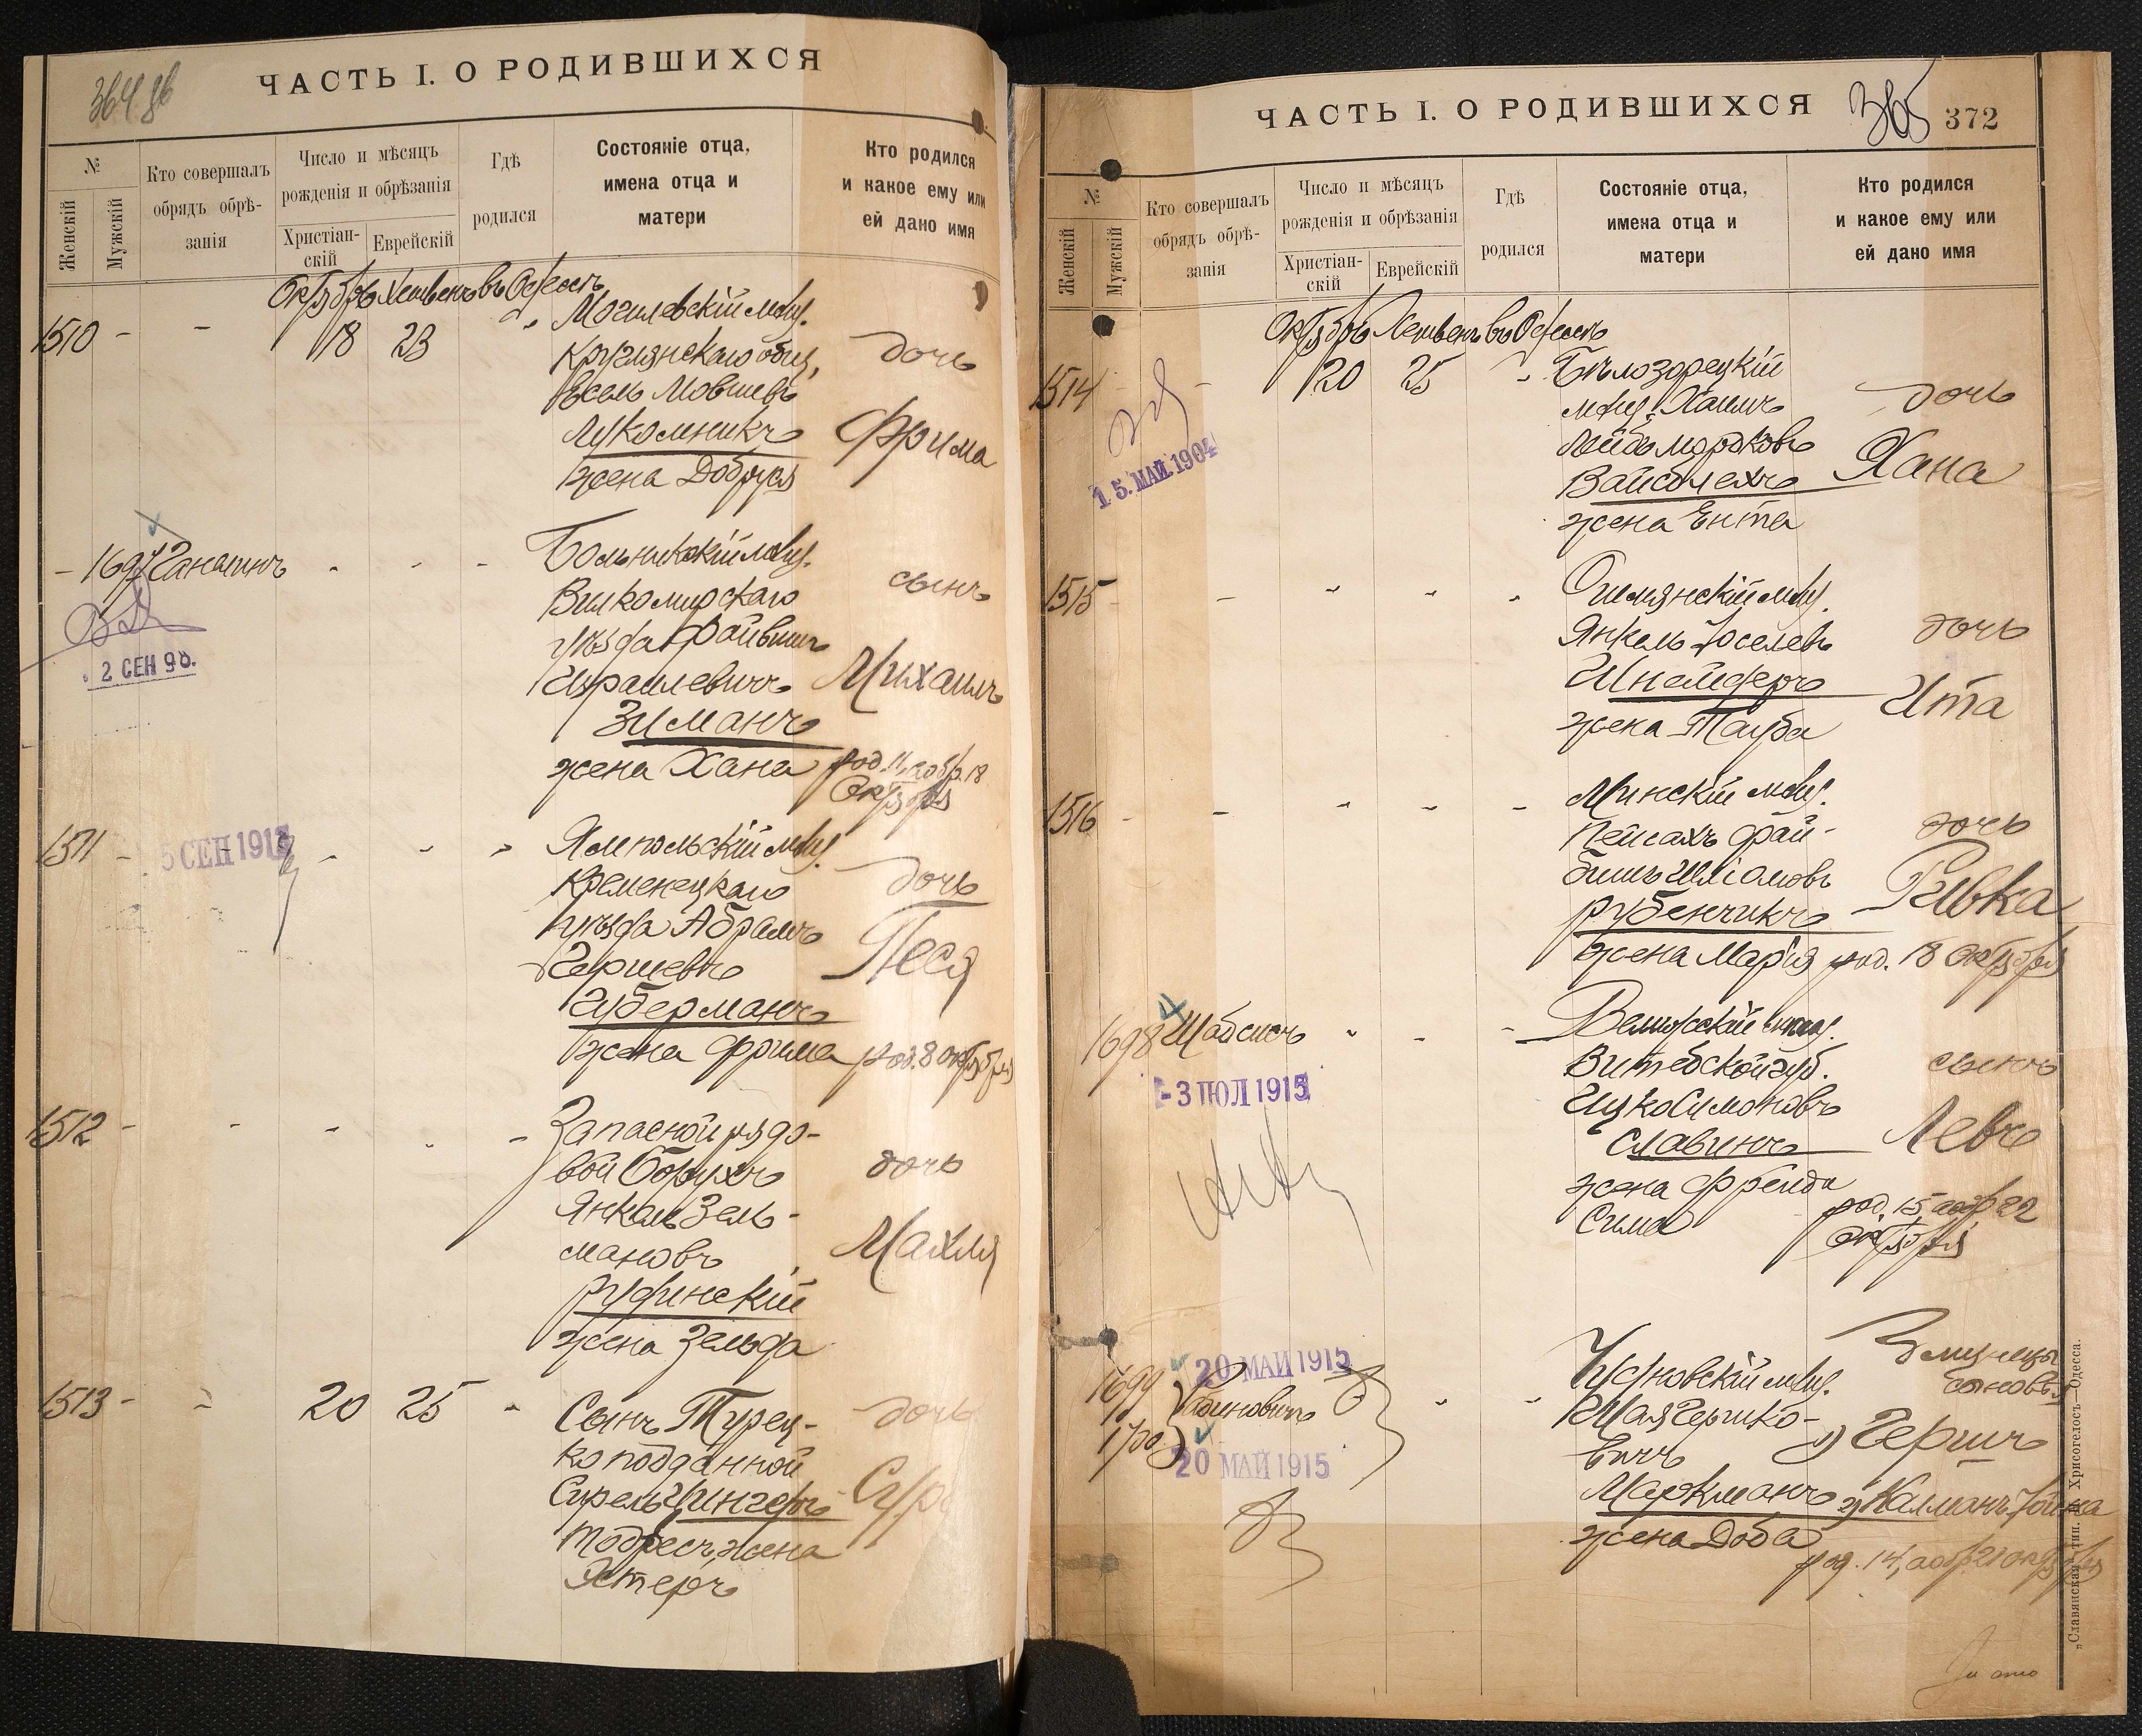 ЧАСТЬ I. О РОДИВШИХСЯ
№
Женскій
Мужскій
Кто совершалъ
обрядъ обрѣ-
занія
Число и мѣсяцъ
рожденія и обрѣзанія
Христіан-
скій
Еврейскій
Гдѣ
родился
Состояніе отца,
имена отца и
матери
Кто родился
и какое ему или
ей дано имя
Октябрь
1510 - - 18 23
Могилевскій мѣщ.
Круглянскаго общ.
Мовшевъ
Лукомникъ
жена Добруся
дочь
Фрима
- 1697 Ганапинъ
2 СЕН 98.
Вилкомирскаго
уѣзда Файвишъ
Израилевичъ
Зиманъ
жена Хана
сынъ
Михаилъ
род. 11, обр. 18
Октября
1511 -
5 СЕП 191
Ямпольскій мѣщ.
Кременецкаго
уѣзда Абрамъ
Гершевъ
Губерманъ
жена Фрима
дочь
Песя
род. 8 октября
1512 -
Запасной рядо-
вой Борухъ
Янкель Зель-
мановъ
Руфинскій
жена Зельда
дочь
Махля
1513 - 20 25
Сынъ Турец-
ко подданной
Сурель Цингеръ
Тодресъ, жена
Эстеръ
дочь
ЧАСТЬ I. О РОДИВШИХСЯ
365 372
№
Женскій
Мужскій
Кто совершалъ
обрядъ обрѣ-
занія
Число и мѣсяцъ
рожденія и обрѣзанія
Христіан-
скій
Еврейскій
Гдѣ
родился
Состояніе отца,
имена отца и
матери
Кто родился
и какое ему или
ей дано имя
Октябрь
1514 - 20 25
15. МАЙ 1904
Бѣлозорецкій
мѣщ. Хаимъ
Лейбъ Мордковъ
Вайсблехъ
жена Ента
дочь
Хана
1515 -
Ошмянскій мѣщ.
Янкель Іоселевъ
Шнейдеръ
жена Тауба
дочь
Ита
1516 -
Минскій мѣщ.
Пейсахъ Фай-
бишъ Шліомовъ
Рубенчикъ
жена Марія
дочь
Ривка
род. 18 октября
1698 Шабсисъ
-3 ІЮЛ 1915
Велижскій мѣщ.
Витебской губ.
Ицко Симоновъ
Славинъ
жена Фрейда
Сима
сынъ
Левъ
род. 15, обр. 22
Октября
1699
1700
20 МАЙ 1915
Рабиновичъ
20 МАЙ 1915
Чудновскій мѣщ.
Шая Гершко-
вичъ
Маркманъ
жена Доба
Близнецы
сыновья
1) Гершъ
2) Калманъ Іойна
род. 14, обр. 21 октября
„Славянская“ тип. Н. Хрисогелосъ—Одесса.